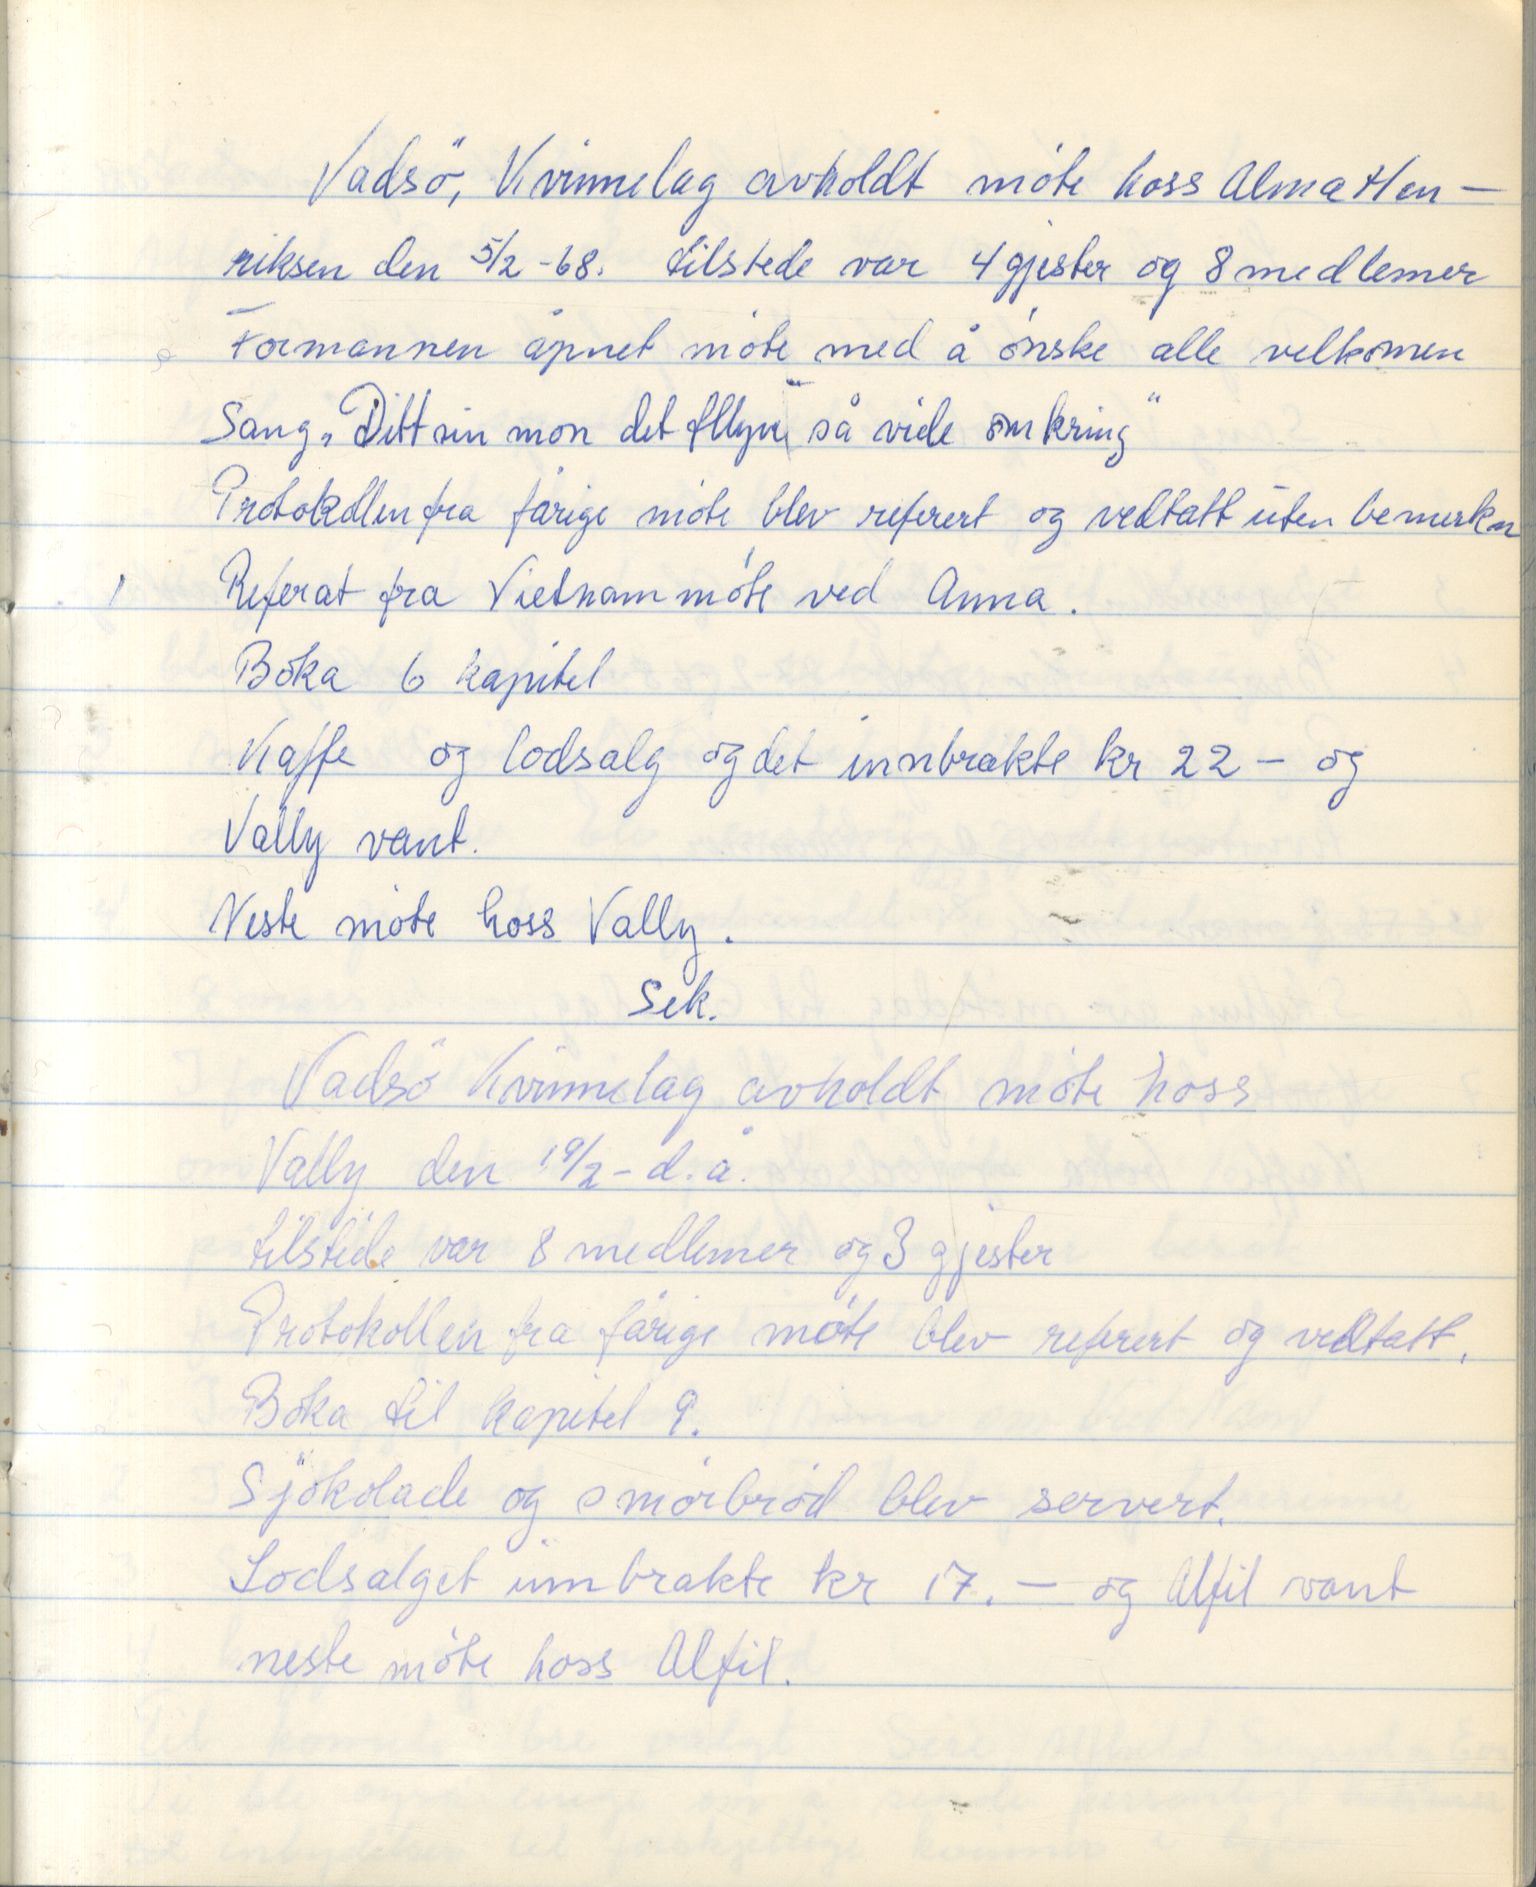 Vadsö, Kvinnelag avholdt möte hoss Alma Hen-
riksen den 5/2 -68. tilstede var 4 gjester og 8 medlemer
Formannen åpnet möte med å önske alle velkomen
Sang „Ditt sin mon det fllyve så vide omkring"
Protokollen fra fårige möte blev referert og vedtatt uten bemerkn
1 Referat fra Vietnam möte ved Anna.
Boka 6 kapitel
Kaffe og lodsalg og det innbrakte kr 22 - og
Vally vant.
Neste möte hoss Vally.
Sek.
Vadsö Kvinnelag avholdt möte hoss
Vally den 19/2 - d.å.
tilstede var 8 medlemer og 3 gjester
Protokollen fra fårige möte blev referert og vedtatt.
Boka til kapitel 9.
Sjökolade og smörbröd blev servert.
Lodsalget innbrakte kr 17. - og Alfil vant
neste möte hoss Alfil.